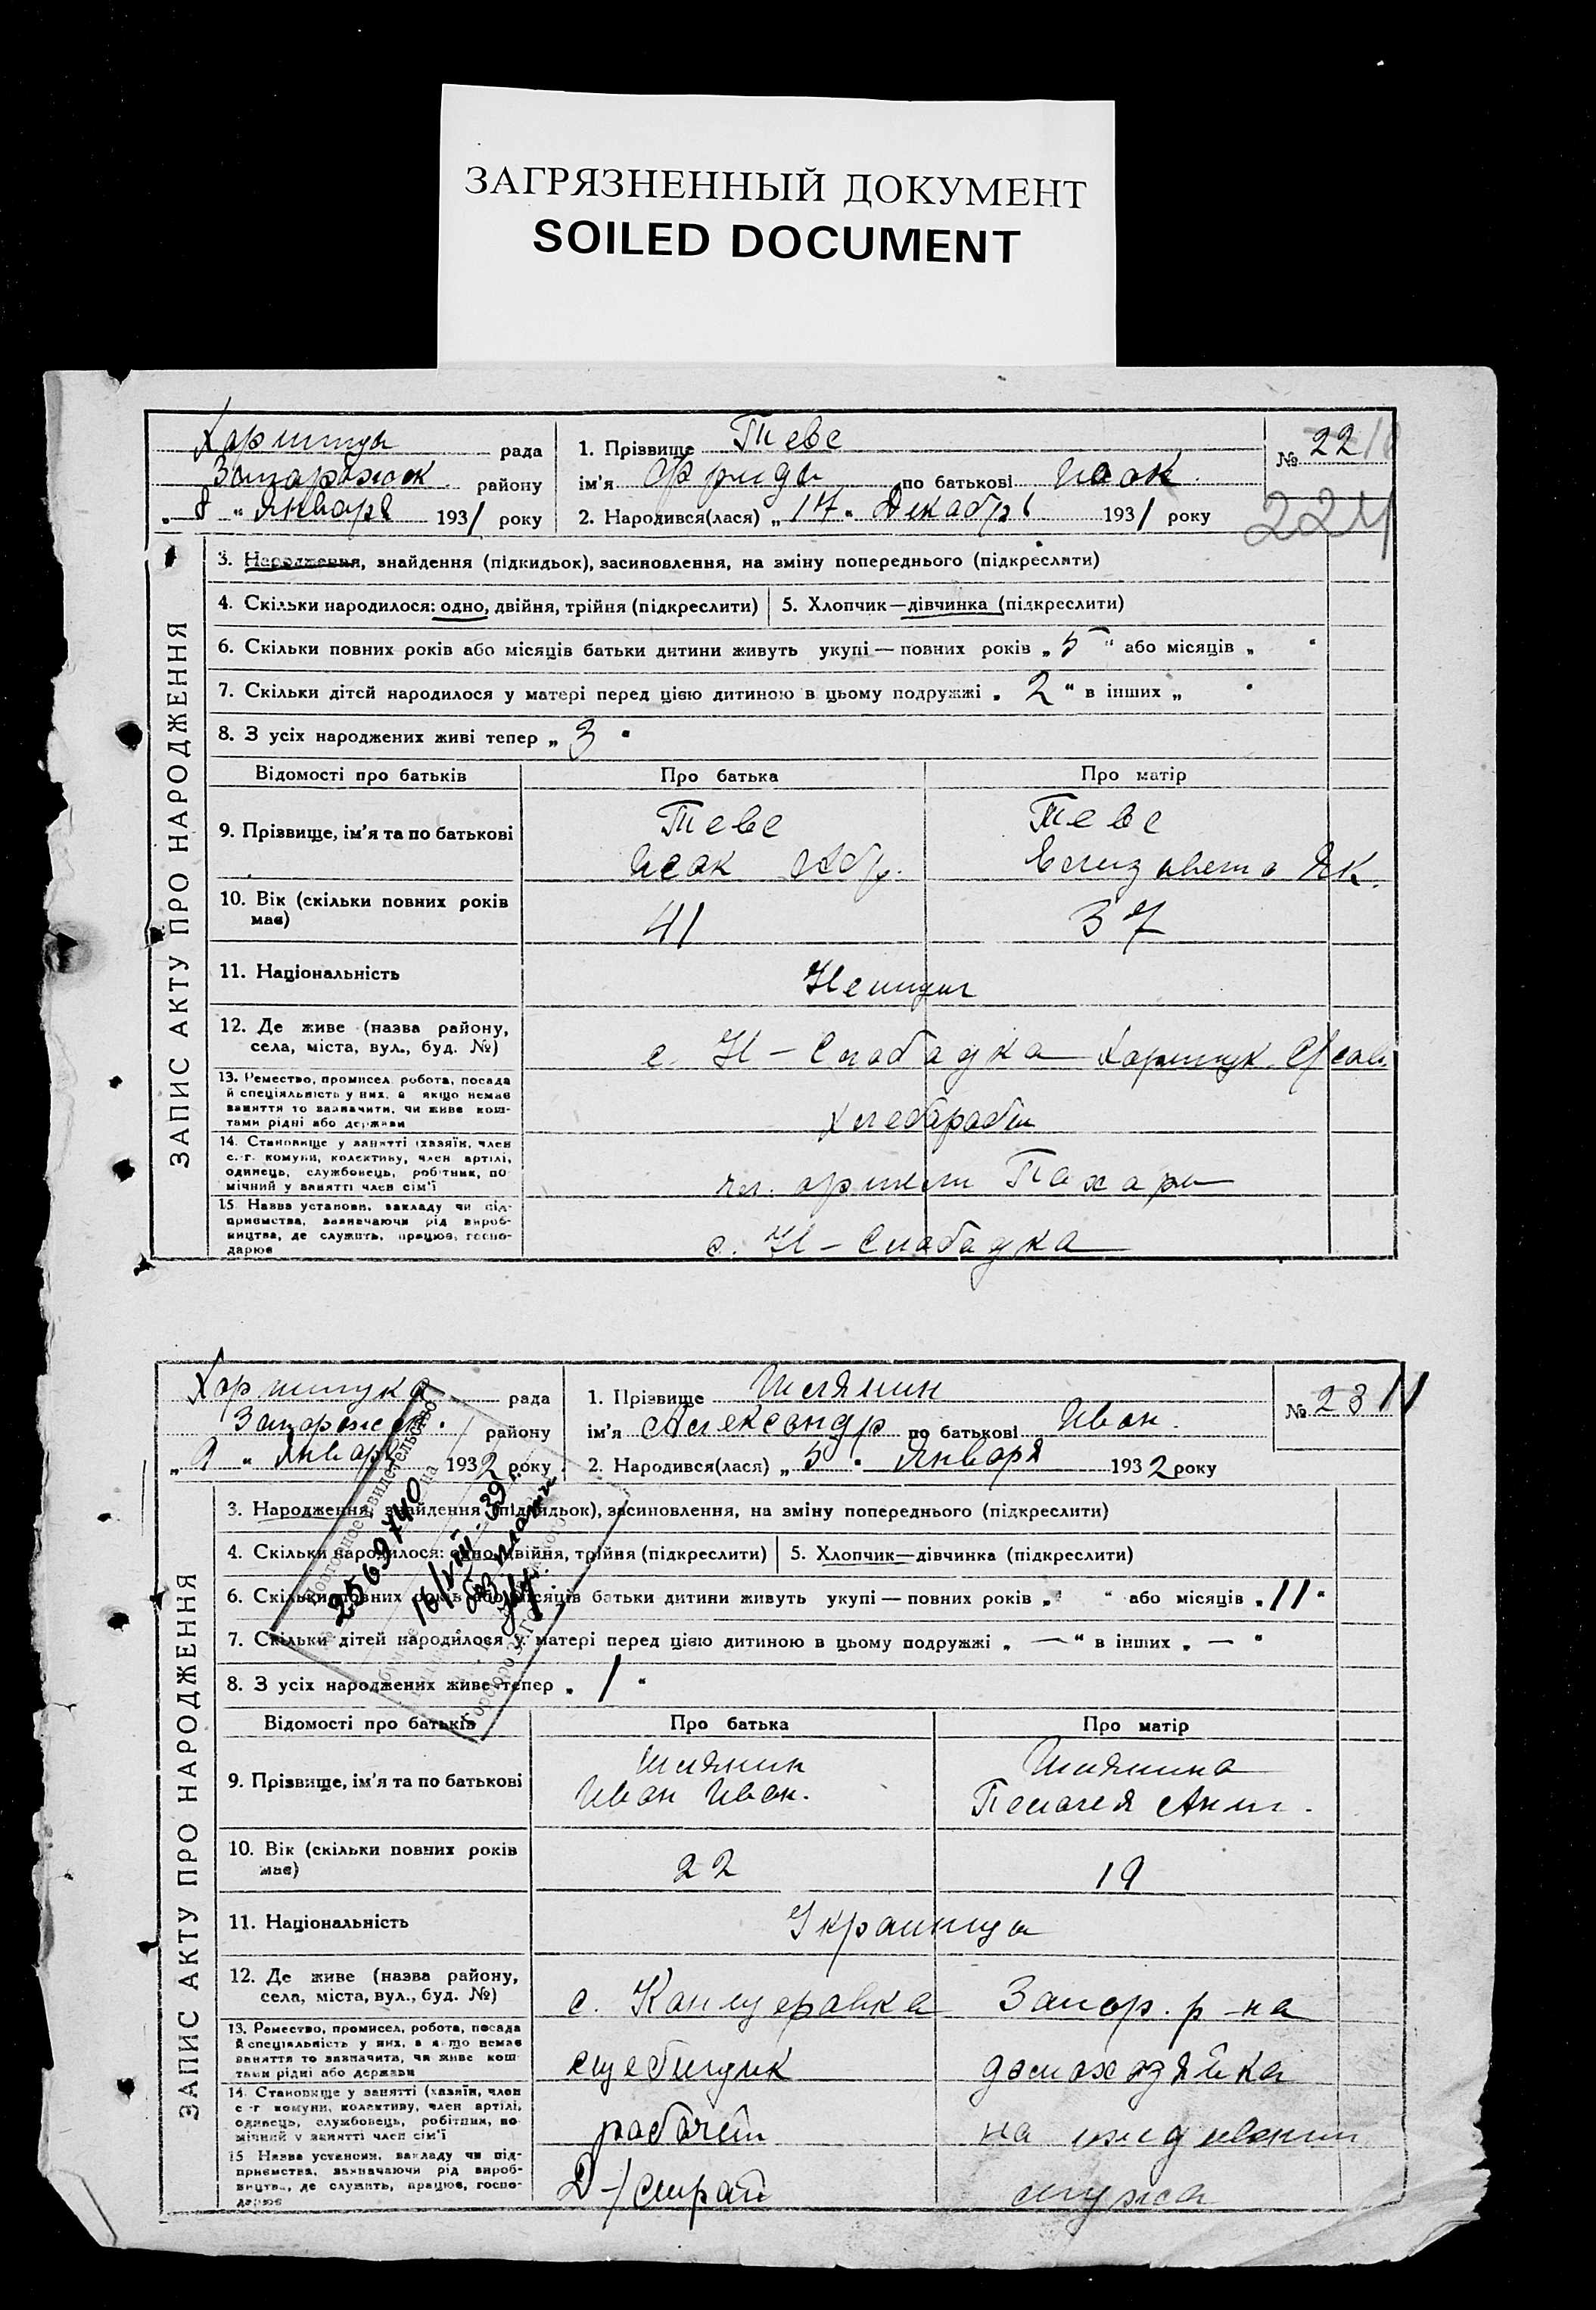 ЗАГРЯЗНЕННЫЙ ДОКУМЕНТ
SOILED DOCUMENT
рада
Запорожск. району
„ 8 “ Января 1931 року
1. Прізвище Теве
ім'я Фрида по батькові Исак.
2. Народився(лася) „ 17 “ Декабря 1931 року
№ 22
221
ЗАПИС АКТУ ПРО НАРОДЖЕННЯ
3. Народження, знайдення (підкидьок), засиновлення, на зміну попереднього (підкреслити)
4. Скільки народилося: одно, двійня, трійня (підкреслити)
5. Хлопчик—дівчинка (підкреслити)
6. Скільки повних років або місяців батьки дитини живуть укупі — повних років „ 5 “ або місяців „ “
7. Скільки дітей народилося у матері перед цією дитиною в цьому подружжі „ 2 “ в інших „ “
8. З усіх народжених живі тепер „ 3 “
Відомості про батьків
Про батька
Про матір
9. Прізвище, ім'я та по батькові
Теве
Исак Абр.
Теве
Елизавета Як.
10. Вік (скільки повних років має)
41
37
11. Національність
Немцы
12. Де живе (назва району,
села, міста, вул., буд. №)
с. Н – Слабадка
13. Ремество, промисел, робота, посада
й спеціяльність у них, а якщо немає
заняття то зазначити, чи живе кош-
тами рідні або держави
Хлебаробы
14. Становище у занятті (хазяїн, член
с.-г. комуни, колективу, член артілі,
одинець, службовець, робітник, по-
мічний у занятті член сім'ї
чл. артели Пахари
15. Назва установи, закладу чи під-
приємства, зазначаючи рід вироб-
ництва, де служить, працює, госпо-
дарює
с. Н – Слабадка
рада
Запорожск. району
„ 9 “ Января 1932 року
1. Прізвище Шлямин
ім'я Александр по батькові Иван.
2. Народився(лася) „ 5 “ Января 1932 року
№ 23
11
ЗАПИС АКТУ ПРО НАРОДЖЕННЯ
3. Народження, знайдення (підкидьок), засиновлення, на зміну попереднього (підкреслити)
4. Скільки народилося: одно, двійня, трійня (підкреслити)
5. Хлопчик—дівчинка (підкреслити)
6. Скільки повних років або місяців батьки дитини живуть укупі — повних років „ “ або місяців „ 11 “
7. Скільки дітей народилося у матері перед цією дитиною в цьому подружжі „ — “ в інших „ — “
8. З усіх народжених живе тепер „ 1 “
Відомості про батьків
Про батька
Про матір
9. Прізвище, ім'я та по батькові
Шлямин
Иван Иван.
Шлямина
Пелагея
10. Вік (скільки повних років має)
22
19
11. Національність
Украинцы
12. Де живе (назва району,
села, міста, вул., буд. №)
с. Канцеравка Запор. р-на
13. Ремество, промисел, робота, посада
й спеціяльність у них, а якщо немає
заняття то зазначити, чи живе кош-
тами рідні або держави
домохозяйка
14. Становище у занятті (хазяїн, член
с.-г. комуни, колективу, член артілі,
одинець, службовець, робітник, по-
мічний у занятті член сім'ї
рабочий
на иждивении
15. Назва установи, закладу чи під-
приємства, зазначаючи рід вироб-
ництва, де служить, працює, госпо-
дарює
Д-/строй
мужа